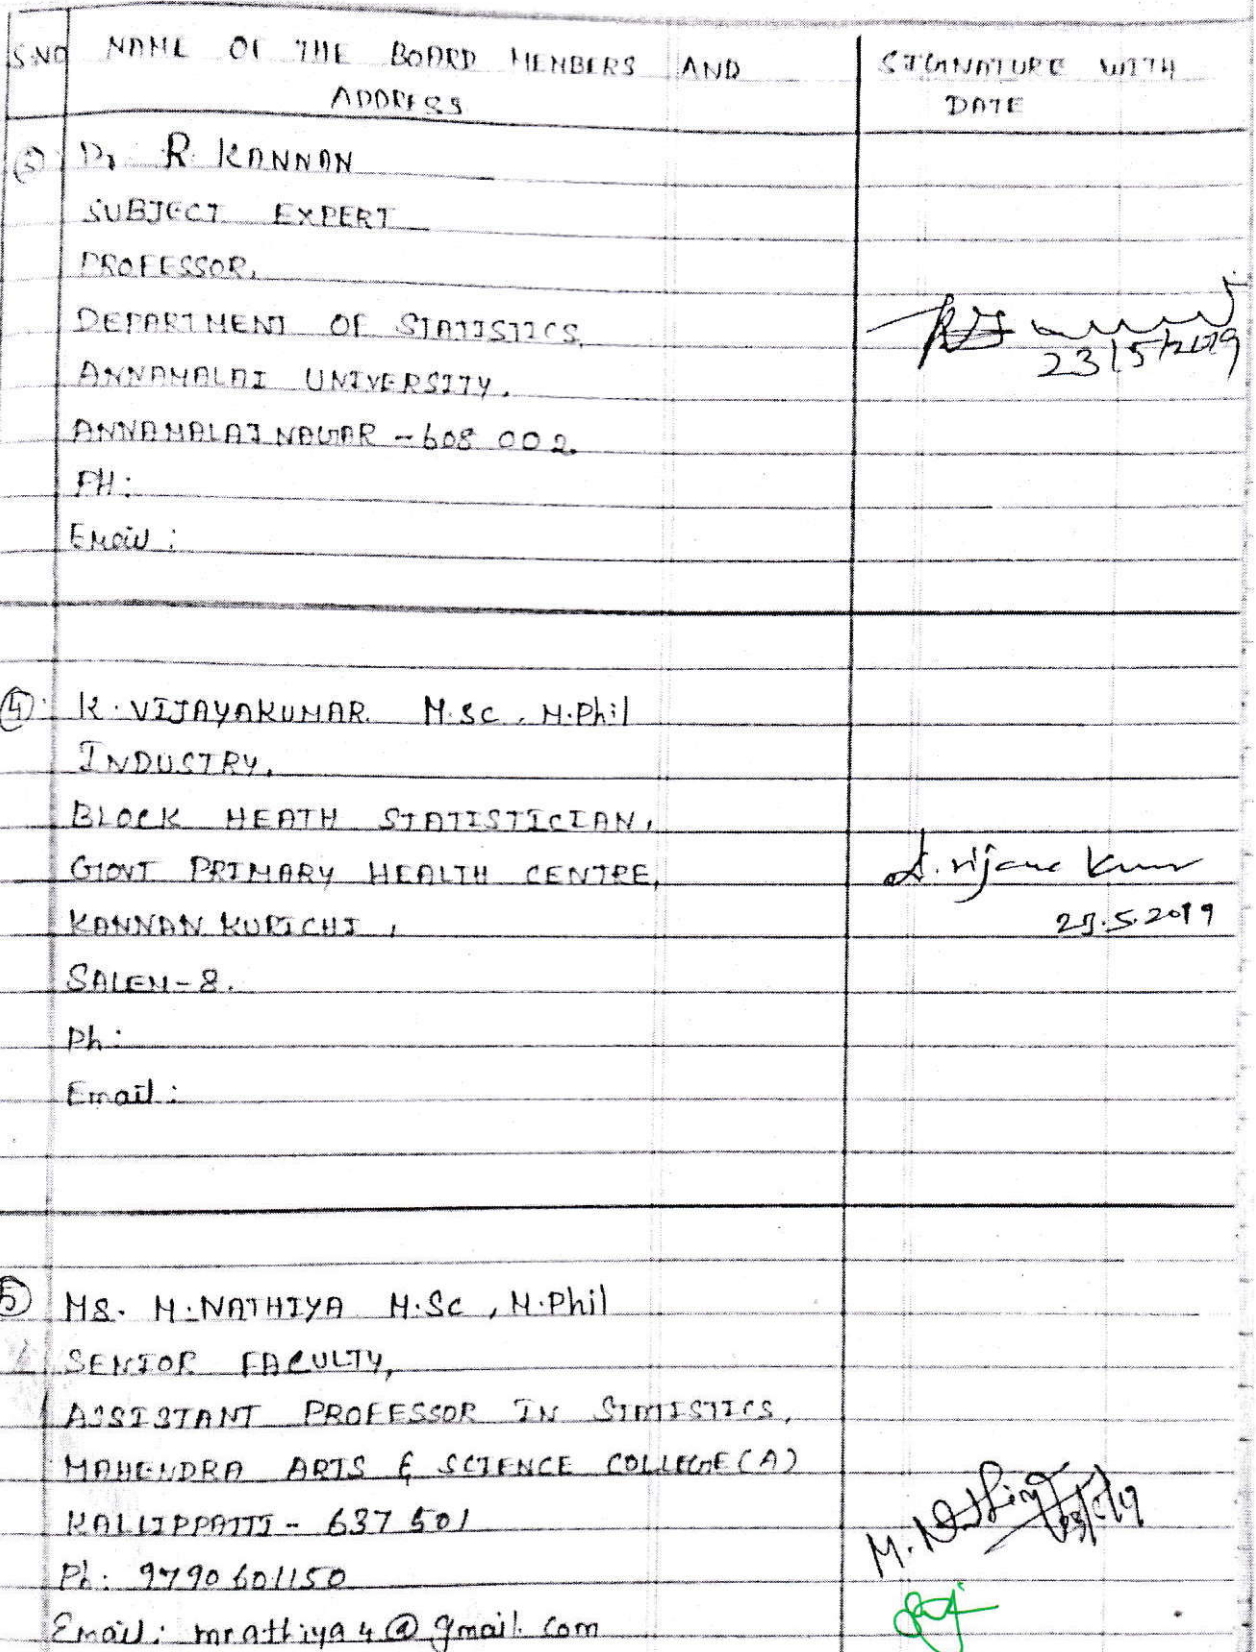 S.NO NAME OF THE BOARD MEMBERS AND ADDRESS SIGNATURE WITH DATE
③ Dr R. KANNAN
SUBJECT EXPERT
PROFESSOR,
DEPARTMENT OF STATISTICS,
ANNAMALAI UNIVERSITY,
ANNAMALAI NAGAR - 608 002.
23/5/2019
PH:
Email:
④ K. VIJAYAKUMAR. M.Sc, M.Phil
INDUSTRY,
BLOCK HEATH STATISTICIAN,
GOVT PRIMARY HEALTH CENTRE,
KANNAN KURICHI,
SALEM-8.
K. Vijaya Kumar
23.5.2019
Ph:
Email:
⑤ MS. M.NATHIYA M.Sc, M.Phil
SENIOR FACULTY,
ASSISTANT PROFESSOR IN STATISTICS,
MAHENDRA ARTS & SCIENCE COLLEGE(A)
KALLIPPATTI - 637 501
Ph: 9790601150
Email: mnathiya4@gmail.com
M. Nathiya 23/5/19